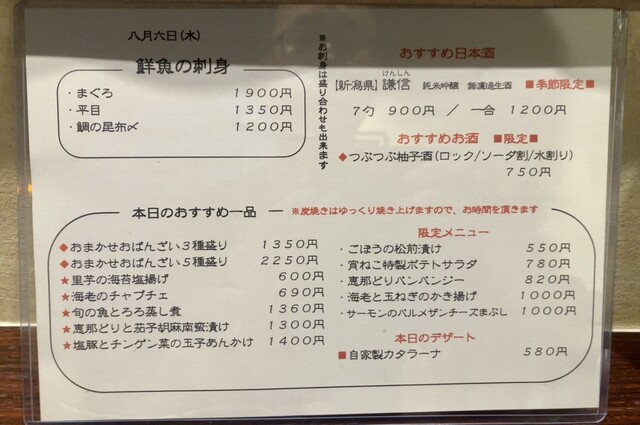 八月六日(水)
鮮魚の刺身
・まぐろ 1900円
・平目 1350円
・鯛の昆布〆 1200円
※お刺身は盛り合わせも出来ます
おすすめ日本酒
けんしん
【新潟県】謙信 純米吟醸 無濾過生酒 ■季節限定■
7勺 900円 / 一合 1200円
おすすめお酒 ■限定■
◆つぶつぶ柚子酒(ロック/ソーダ割/水割り)
750円
本日のおすすめ一品 ※炭焼きはゆっくり焼き上げますので、お時間を頂きます
◆おまかせおばんざい3種盛り 1350円
◆おまかせおばんざい5種盛り 2250円
★里芋の海苔塩揚げ 600円
★海老のチャプチェ 690円
★旬の魚とろろ蒸し煮 1360円
★恵那どりと茄子胡麻南蛮漬け 1300円
★塩豚とチンゲン菜の玉子あんかけ 1400円
限定メニュー
・ごぼうの松前漬け 550円
・宵ねこ特製ポテトサラダ 780円
・恵那どりバンバンジー 820円
・海老と玉ねぎのかき揚げ 1000円
・サーモンのパルメザンチーズまぶし 1000円
本日のデザート
■自家製カタラーナ 580円